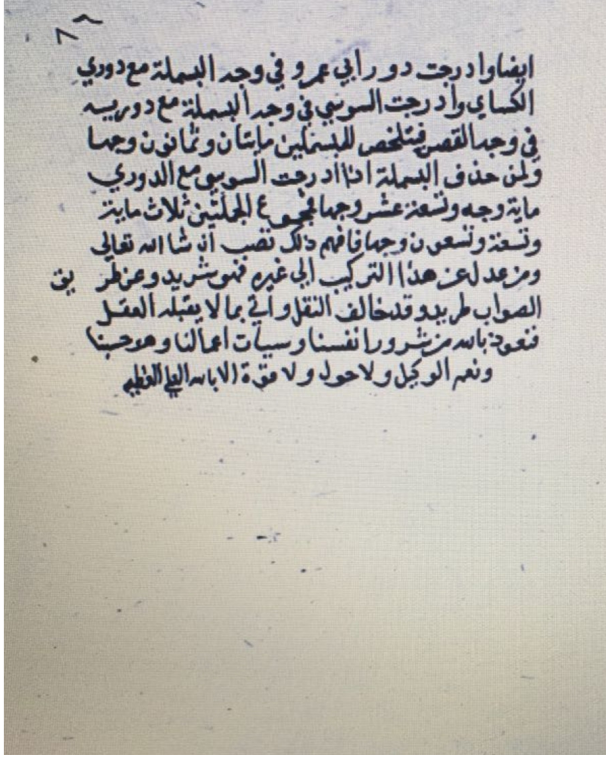 ايضا وادرجت دوراي ابي عمرو في وجه البسملة مع دوري
الكساي وادرجت السوسي في وجه البسملة مع دوريه
في وجه القصر فيتلخص للبسملين مايتان وثمانون وجها
ولمن حذف البسملة اذا ادرجت السوسي مع الدوري
ماية وجه وتسعة عشر وجها فمجموع الجملتين ثلاث ماية
وتسعة وتسعون وجها فافهم ذلك تصب ان شا الله تعالي
ومن عدل عن هذا التركيب الي غيره فهو شريد وعن طريق
الصواب طريد وقد خالف النقل واتي بما لا يقبله العقل
فنعوذ بالله من شرور انفسنا وسيات اعمالنا وهو حسبنا
ونعم الوكيل ولا حول ولا قوة الا بالله العلي العظيم